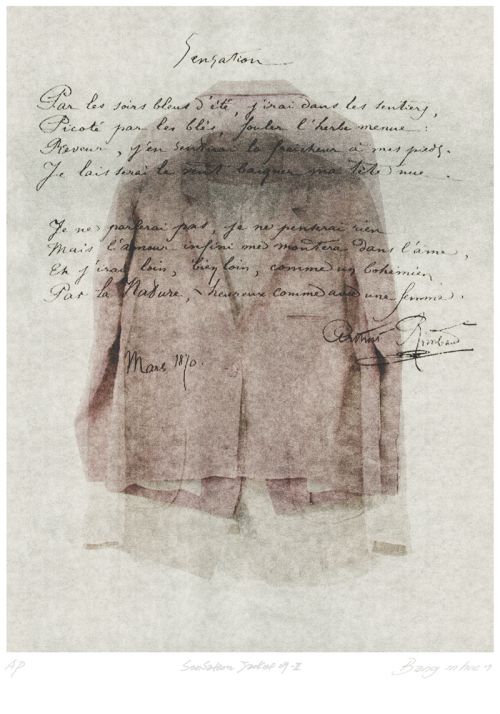 Sensation
Par les soirs bleus d'été, j'irai dans les sentiers,
Picoté par les blés, fouler l'herbe menue :
Rêveur, j'en sentirai la fraîcheur à mes pieds.
Je laisserai le vent baigner ma tête nue.
Je ne parlerai pas, je ne penserai rien
Mais l'amour infini me montera dans l'âme,
Et j'irai loin, bien loin, comme un bohémien
Par la Nature, heureux comme avec une femme.
Arthur Rimbaud
Mars 1870.
AP Sensation Jacket 09-II Bang